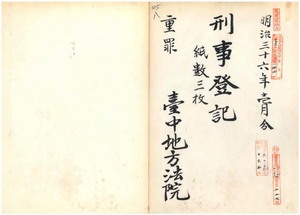 明治三十六年壹月分
刑事登記
紙數三枚
重罪
臺中地方法院